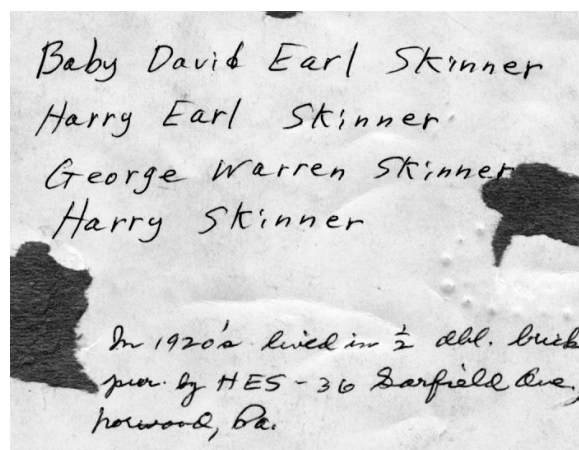 Baby David Earl Skinner
Harry Earl Skinner
George Warren Skinner
Harry Skinner
In 1920's lived in ½ dbl. brick
pur. by HES - 36 Garfield Ave,
norwood, Pa.